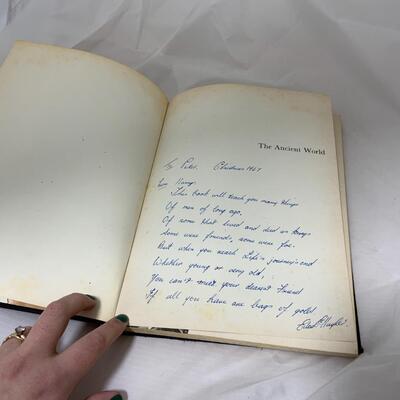 The Ancient World
To Peter. Christmas 1967
from Nanny.
This book will teach you many things
Of men of long ago.
Of some that lived and died as kings
Some were friends, some were foe.
But when you reach Life's journey's end
Whether young or very old,
You can't meet your dearest friend
If all you have are bags of gold